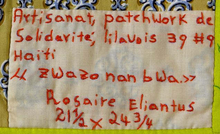 Artisanat, patchwork de
Solidarite, lilavois 39 #9
Haïti
« ZWazo nan bWa.»
Rosaire Eliantus
21 1/2 x 24 3/4